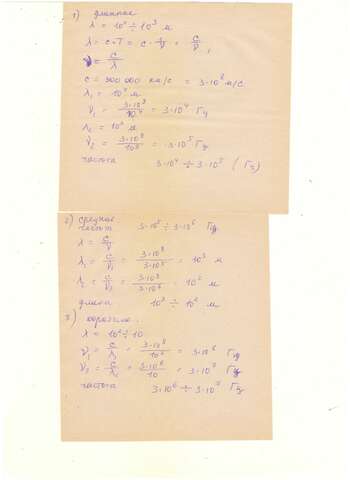 1) длинные
λ = 10⁴ ÷ 10³ м
λ = c·T = c · 1/ν = c/ν ,
ν = c/λ
c = 300 000 км/с = 3·10⁸ м/с
λ₁ = 10⁴ м
ν₁ = 3·10⁸/10⁴ = 3·10⁴ Гц
λ₂ = 10³ м
ν₂ = 3·10⁸/10³ = 3·10⁵ Гц
частота 3·10⁴ ÷ 3·10⁵ (Гц)
2) средние
частот 3·10⁵ ÷ 3·10⁶ Гц
λ = c/ν
λ₁ = c/ν₁ = 3·10⁸/3·10⁵ = 10³ м
λ₂ = c/ν₂ = 3·10⁸/3·10⁶ = 10² м
длина 10³ ÷ 10² м
3) короткие
λ = 10² ÷ 10
ν₁ = c/λ₁ = 3·10⁸/10² = 3·10⁶ Гц
ν₂ = c/λ₂ = 3·10⁸/10 = 3·10⁷ Гц
частота 3·10⁶ ÷ 3·10⁷ Гц